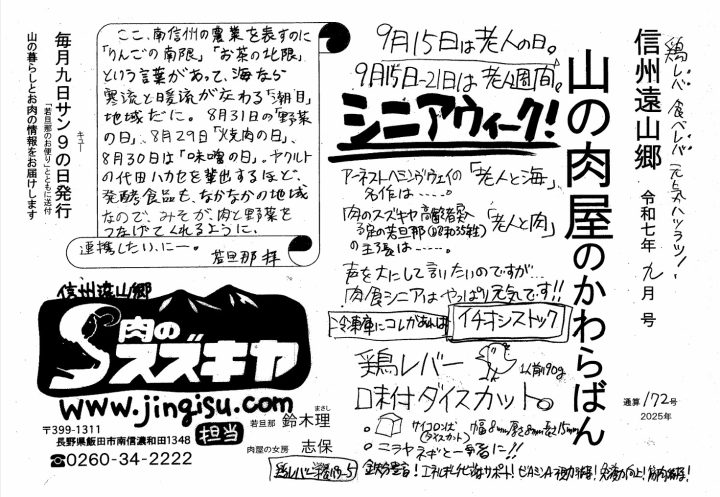 鶏レバ 食べレバ 元気ハツラツ!
信州遠山郷
令和七年 九月号
山の肉屋のかわらばん
通算172号
2025年
9月15日は老人の日。
9月15日~21日は老人週間。
シニアウィーク!
アーネストヘミングウェイの「老人と海」、
名作は……。
肉のスズキヤ高齢者
予備の若旦那(昭和35年生)「老人と肉」
の主張は……。
声を大にして言いたいのですが…
肉食シニアはやっぱり元気です!!
冷凍庫にコレがあれば イチオシストック
鶏レバー 1人前190g
味付ダイスカット。
サイコロンぽ 幅8mm厚さ8mm高さ15mm
(ダイスカット)
ニラヤネギと一緒に!!
鶏レバー
鉄分豊富! エネルギー代謝サポート! ビタミンA
ここ、南信州の農業を表すのに
「りんごの南限」「お茶の北限」
という言葉があって、海なら
寒流と暖流が交わる「潮目」
地域だに。8月31日の「野菜
の日」、8月29日「焼肉の日」、
8月30日は「味噌の日」。ヤクルト
の代田ハカセを輩出するほど、
発酵食品も、なかなかの地域
なので、みそが、肉と野菜を
つなげてくれるように、
連携したい、にー。
若旦那 拝
毎月九日サン9の日発行
キュー
「若旦那のお便り」とともに送付
山の暮らしとお肉の情報をお届けします
信州遠山郷
肉の
スズキヤ
www.jingisu.com
〒399-1311
長野県飯田市南信濃和田1348
☎0260-34-2222
担当
若旦那 鈴木理
まさし
肉屋の女房 志保